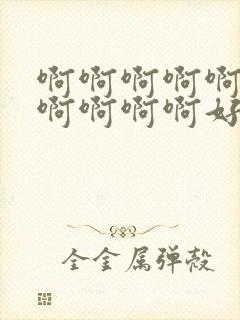 啊啊啊啊啊
啊啊啊啊好
全金属弹殼